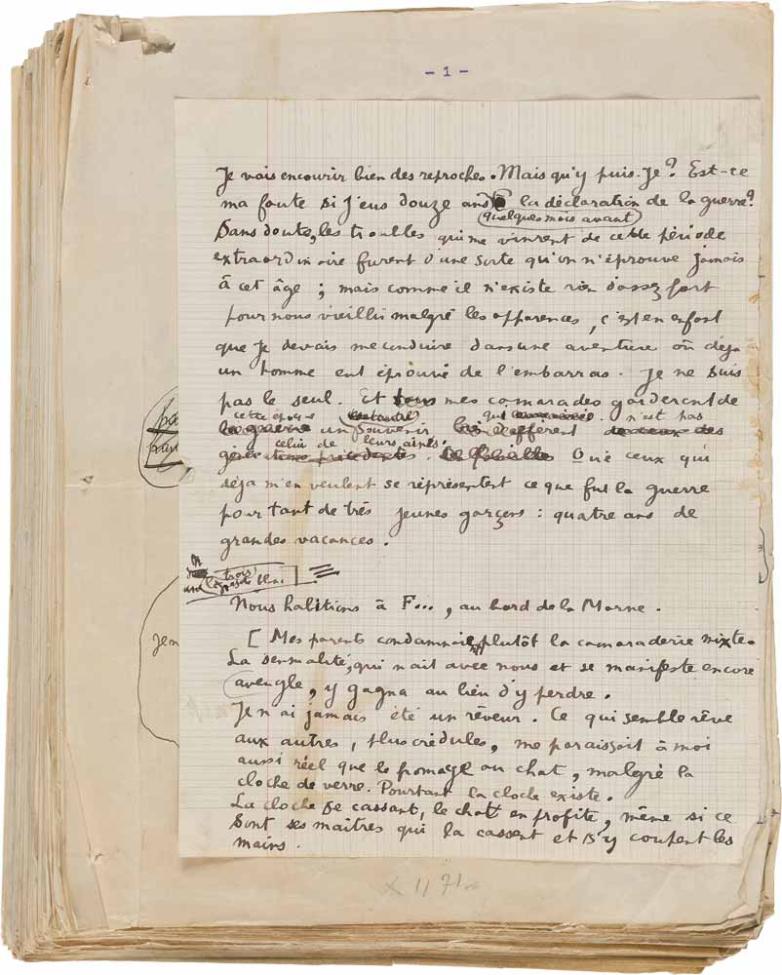 - 1 -
Je vais encourir bien des reproches. Mais qu'y puis-je? Est-ce
ma faute si j'eus douze ans la déclaration de la guerre?
quelques mois avant
Sans doute, les troubles qui me vinrent de cette période
extraordinaire furent d'une sorte qu'on n'éprouve jamais
à cet âge ; mais comme il n'existe rien d'assez fort
pour nous vieillir malgré les apparences, c'est en enfant
que je devais me conduire dans une aventure où déjà
un homme eut éprouvé de l'embarras. Je ne suis
pas le seul. Et mes camarades garderont de
cette époque qui n'est pas
un souvenir différent
celui de leurs aînés.
Que ceux qui
déjà m'en veulent se représentent ce que fut la guerre
pour tant de très jeunes garçons : quatre ans de
grandes vacances.
trois
Nous habitions à F..., au bord de la Marne.
[ Mes parents condamnaient plutôt la camaraderie mixte.
La sensualité, qui nait avec nous et se manifeste encore
aveugle, y gagna au lieu d'y perdre.
Je n'ai jamais été un rêveur. Ce qui semble rêve
aux autres, plus crédules, me paraissait à moi
aussi réel que le fromage au chat, malgré la
cloche de verre. Pourtant la cloche existe.
La cloche se cassant, le chat en profite, même si ce
sont ses maîtres qui la cassent et s'y coupent les
mains.